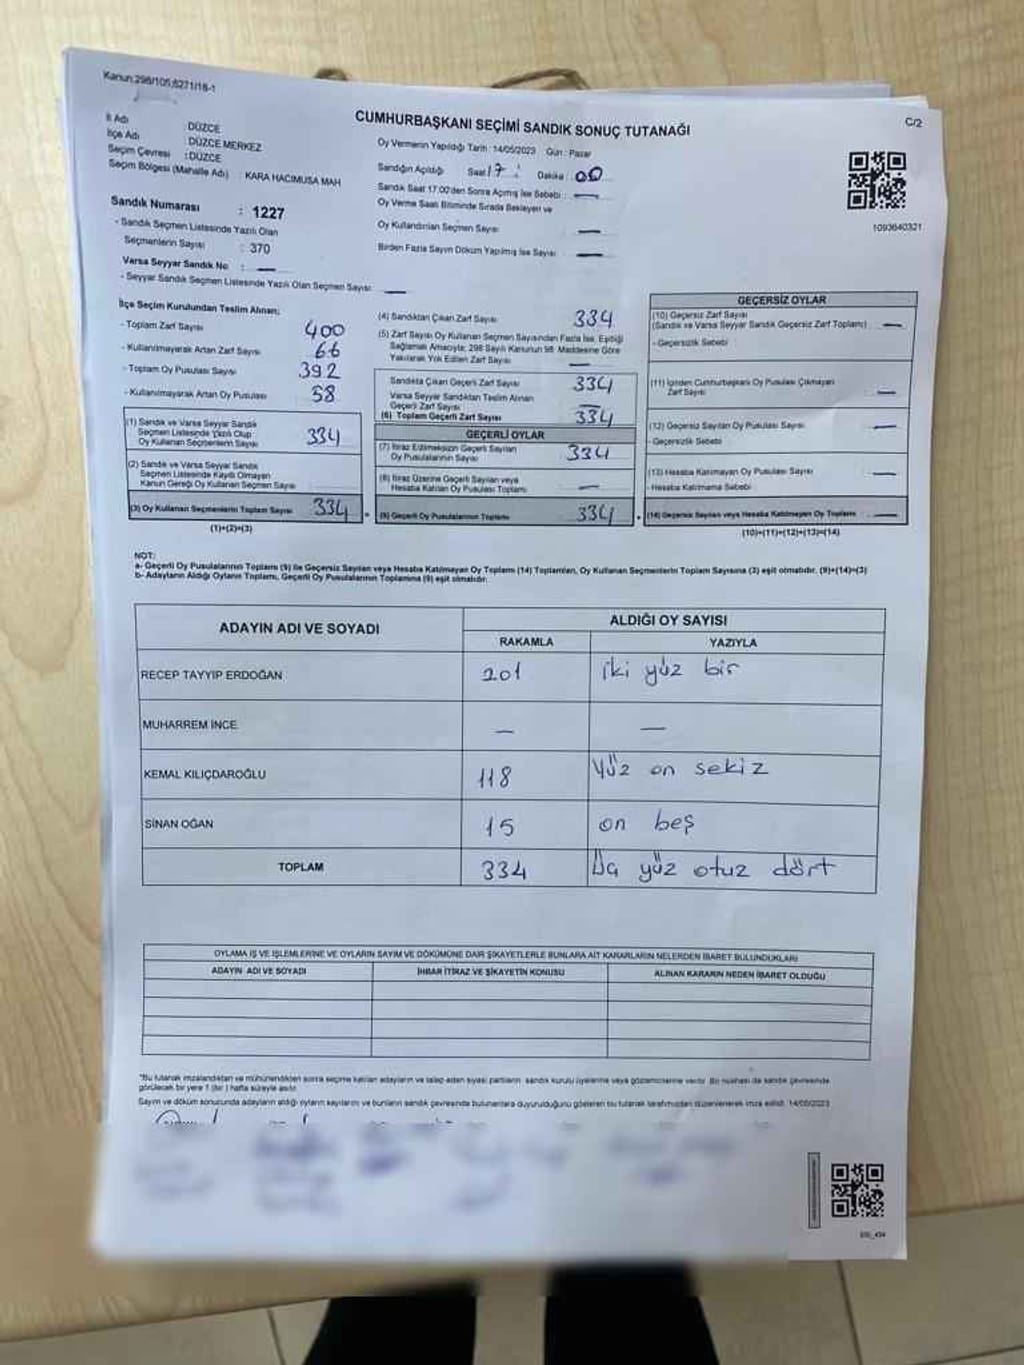 Kanun:298/105;6271/18-1
C/2
CUMHURBAŞKANI SEÇİMİ SANDIK SONUÇ TUTANAĞI
İl Adı : DÜZCE
İlçe Adı : DÜZCE MERKEZ
Seçim Çevresi : DÜZCE
Seçim Bölgesi (Mahalle Adı) : KARA HACIMUSA MAH
Sandık Numarası : 1227
- Sandık Seçmen Listesinde Yazılı Olan
Seçmenlerin Sayısı : 370
Varsa Seyyar Sandık No : —
- Seyyar Sandık Seçmen Listesinde Yazılı Olan Seçmen Sayısı: —
Oy Vermenin Yapıldığı Tarih : 14/05/2023 Gün : Pazar
Sandığın Açıldığı Saat 17 : Dakika : 00
Sandık Saat 17:00'den Sonra Açılmış İse Sebebi : —
Oy Verme Saati Bitiminde Sırada Bekleyen ve
Oy Kullandırılan Seçmen Sayısı : —
Birden Fazla Sayım Döküm Yapılmış İse Sayısı : —
1093640321
İlçe Seçim Kurulundan Teslim Alınan;
- Toplam Zarf Sayısı 400
- Kullanılmayarak Artan Zarf Sayısı 66
- Toplam Oy Pusulası Sayısı 392
- Kullanılmayarak Artan Oy Pusulası 58
(1) Sandık ve Varsa Seyyar Sandık
Seçmen Listesinde Yazılı Olup
Oy Kullanan Seçmenlerin Sayısı 334
(2) Sandık ve Varsa Seyyar Sandık
Seçmen Listesinde Kayıtlı Olmayan
Kanun Gereği Oy Kullanan Seçmen Sayısı
(3) Oy Kullanan Seçmenlerin Toplam Sayısı 334
(1)+(2)=(3)
(4) Sandıktan Çıkan Zarf Sayısı 334
(5) Zarf Sayısı Oy Kullanan Seçmen Sayısından Fazla İse, Eşitliği
Sağlamak Amacıyla; 298 Sayılı Kanunun 98. Maddesine Göre
Yakılarak Yok Edilen Zarf Sayısı —
Sandıkta Çıkan Geçerli Zarf Sayısı 334
Varsa Seyyar Sandıktan Teslim Alınan
Geçerli Zarf Sayısı —
(6) Toplam Geçerli Zarf Sayısı 334
GEÇERLİ OYLAR
(7) İtiraz Edilmeksizin Geçerli Sayılan
Oy Pusulalarının Sayısı 334
(8) İtiraz Üzerine Geçerli Sayılan veya
Hesaba Katılan Oy Pusulası Toplamı —
(9) Geçerli Oy Pusulalarının Toplamı 334
GEÇERSİZ OYLAR
(10) Geçersiz Zarf Sayısı
(Sandık ve Varsa Seyyar Sandık Geçersiz Zarf Toplamı) —
- Geçersizlik Sebebi
(11) İçinden Cumhurbaşkanı Oy Pusulası Çıkmayan
Zarf Sayısı —
(12) Geçersiz Sayılan Oy Pusulası Sayısı —
- Geçersizlik Sebebi
(13) Hesaba Katılmayan Oy Pusulası Sayısı —
- Hesaba Katılmama Sebebi
(14) Geçersiz Sayılan veya Hesaba Katılmayan Oy Toplamı —
(10)+(11)+(12)+(13)=(14)
NOT:
a- Geçerli Oy Pusulalarının Toplamı (9) ile Geçersiz Sayılan veya Hesaba Katılmayan Oy Toplamı (14) Toplamları, Oy Kullanan Seçmenlerin Toplam Sayısına (3) eşit olmalıdır. (9)+(14)=(3)
b- Adayların Aldığı Oyların Toplamı, Geçerli Oy Pusulalarının Toplamına (9) eşit olmalıdır.
ADAYIN ADI VE SOYADI ALDIĞI OY SAYISI
RAKAMLA YAZIYLA
RECEP TAYYIP ERDOĞAN 201 iki yüz bir
MUHARREM İNCE — —
KEMAL KILIÇDAROĞLU 118 Yüz on sekiz
SİNAN OĞAN 15 on beş
TOPLAM 334 Üç yüz otuz dört
OYLAMA İŞ VE İŞLEMLERİNE VE OYLARIN SAYIM VE DÖKÜMÜNE DAİR ŞİKAYETLERLE BUNLARA AİT KARARLARIN NELERDEN İBARET BULUNDUKLARI
ADAYIN ADI VE SOYADI İHBAR İTİRAZ VE ŞİKAYETİN KONUSU ALINAN KARARIN NEDEN İBARET OLDUĞU
*Bu tutanak imzalandıktan ve mühürlendikten sonra seçime katılan adayların ve talep eden siyasi partilerin sandık kurulu üyelerine veya gözlemcilerine verilir. Bir nüshası da sandık çevresinde
görülecek bir yere 1 (bir ) hafta süreyle asılır.
Sayım ve döküm sonucunda adayların aldığı oyların sayılarını ve bunların sandık çevresinde bulunanlara duyurulduğunu gösteren bu tutanak tarafımızdan düzenlenerek imza edildi. 14/05/2023